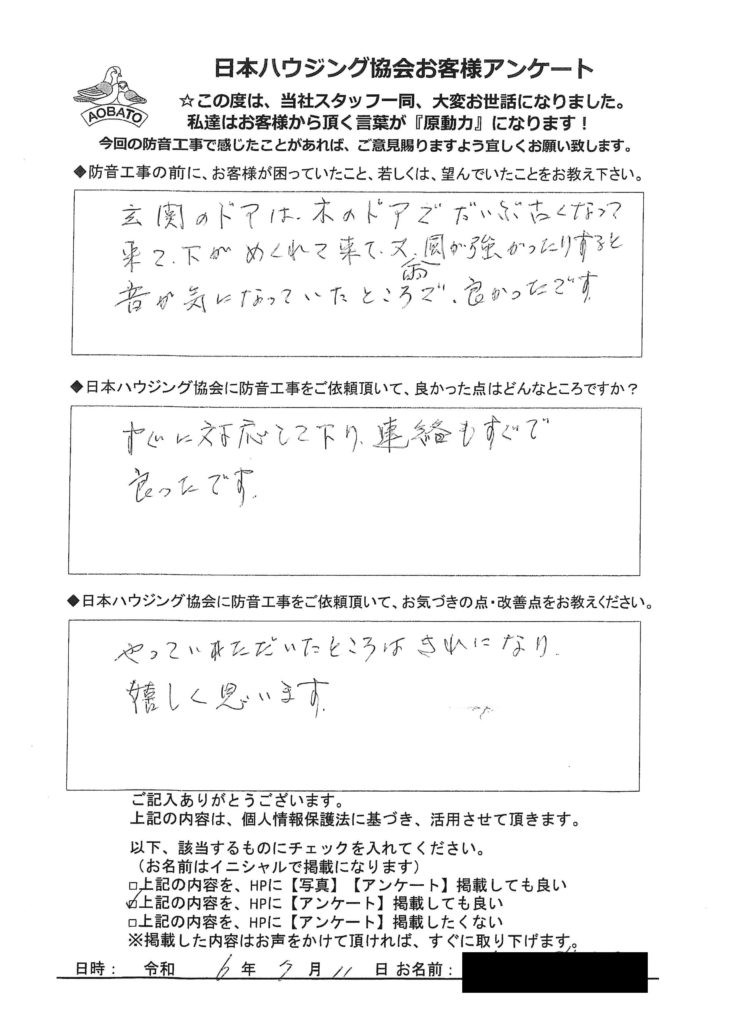 日本ハウジング協会お客様アンケート
AOBATO
☆この度は、当社スタッフ一同、大変お世話になりました。
私達はお客様から頂く言葉が『原動力』になります！
今回の防音工事で感じたことがあれば、ご意見賜りますよう宜しくお願い致します。
◆防音工事の前に、お客様が困っていたこと、若しくは、望んでいたことをお教え下さい。
玄関のドアは、木のドアでだいぶ古くなって
来て、下がめくれて来て、又、風が強かったりすると
雨
音が気になっていたところで、良かったです
◆日本ハウジング協会に防音工事をご依頼頂いて、良かった点はどんなところですか？
すぐに対応して下り、連絡もすぐで
良ったです。
◆日本ハウジング協会に防音工事をご依頼頂いて、お気づきの点・改善点をお教えください。
やっていただいたところはきれになり、
嬉しく思います。
ご記入ありがとうございます。
上記の内容は、個人情報保護法に基づき、活用させて頂きます。
以下、該当するものにチェックを入れてください。
（お名前はイニシャルで掲載になります）
□上記の内容を、HPに【写真】【アンケート】掲載しても良い
☑上記の内容を、HPに【アンケート】掲載しても良い
□上記の内容を、HPに【アンケート】掲載したくない
※掲載した内容はお声をかけて頂ければ、すぐに取り下げます。
日時： 令和 6 年 月 11 日 お名前：